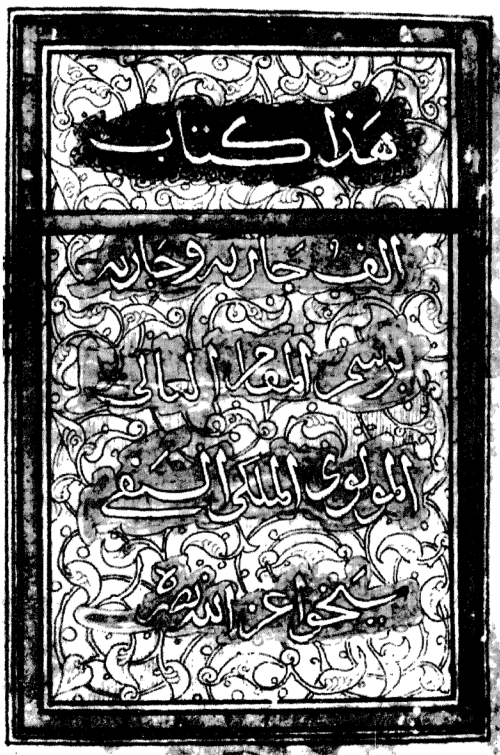 هَذَا كتاب
الف جَاريه وجَاريه
برسم المقام العالى
المولوى الملكى السيفى
عز الله نصره